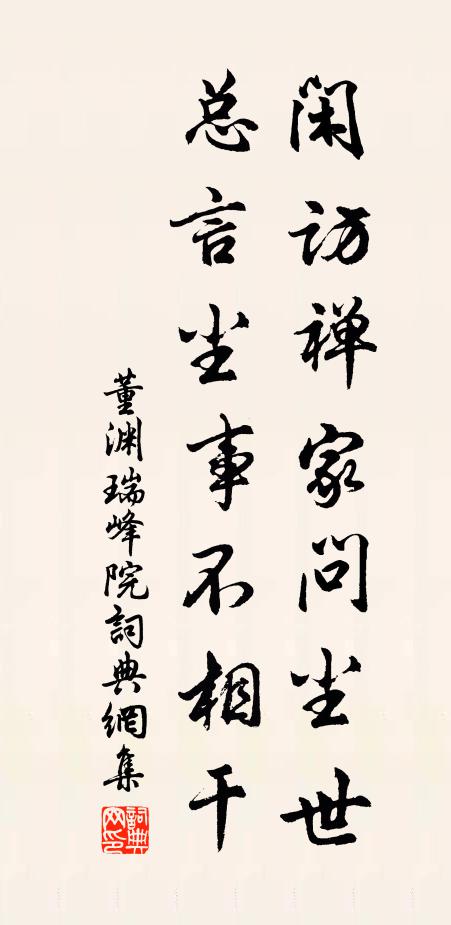 闲访禅家问尘世
总言尘事不相干
董渊瑞峰院詞典網集
詞典网印